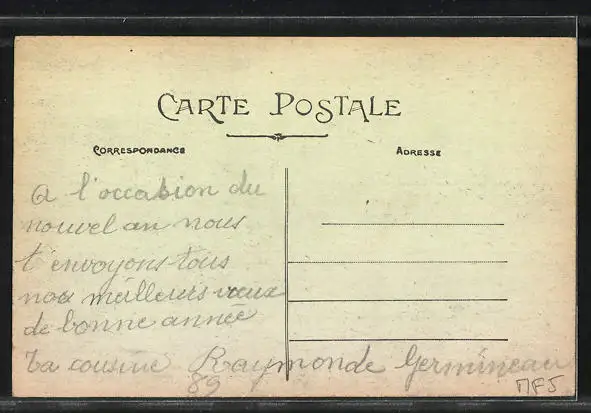 CARTE POSTALE
CORRESPONDANCE
ADRESSE
A l'occasion du
nouvel an nous
t'envoyons tous
nos meilleurs vœux
de bonne année
ta cousine Raymonde Germineau
89
MFJ